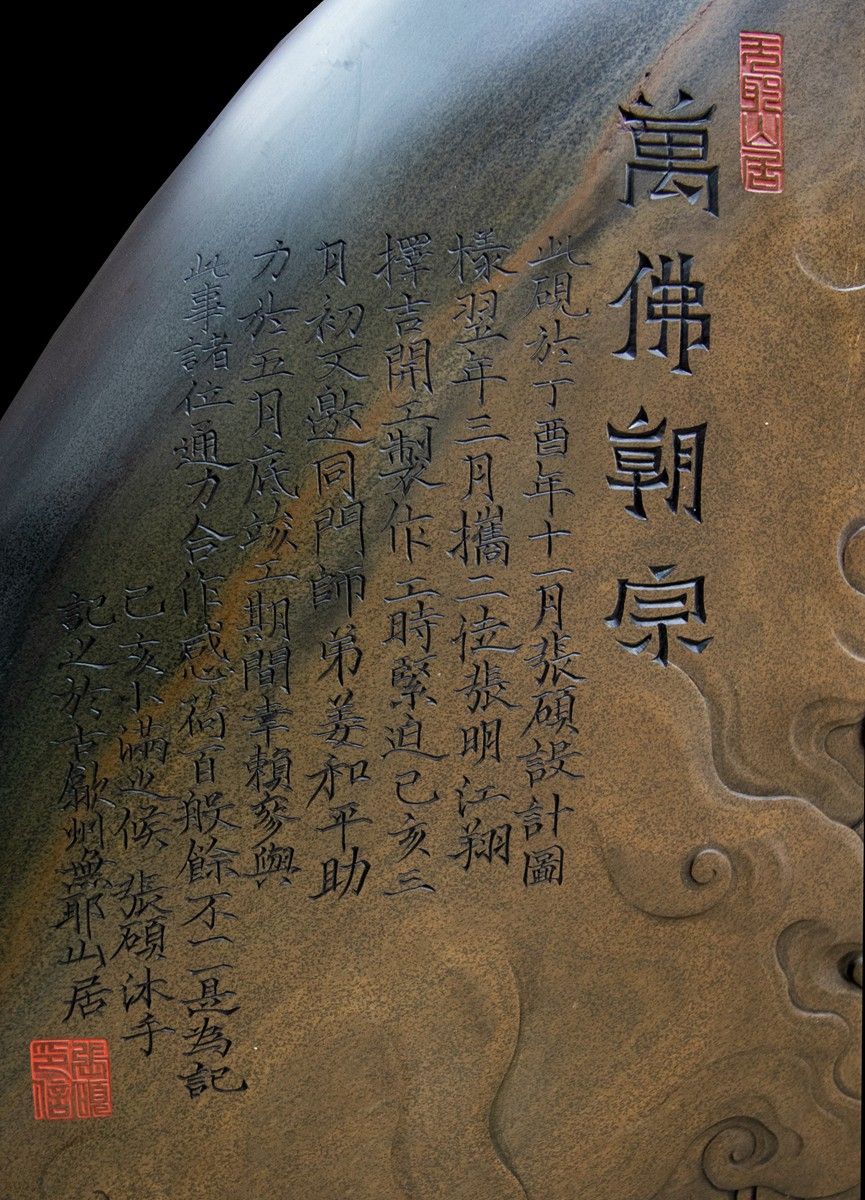 无耶山居
萬佛朝宗
此硯於丁酉年十一月張碩設計圖
樣翌年三月攜二徒張明江翔
擇吉開工製作工時緊迫己亥三
月初又邀同門師弟姜和平助
力於五月底竣工期間幸賴參與
此事諸位通力合作感荷百般餘不一一是為記
己亥小滿之候張碩沐手
記之於古歙州無耶山居
張碩印信